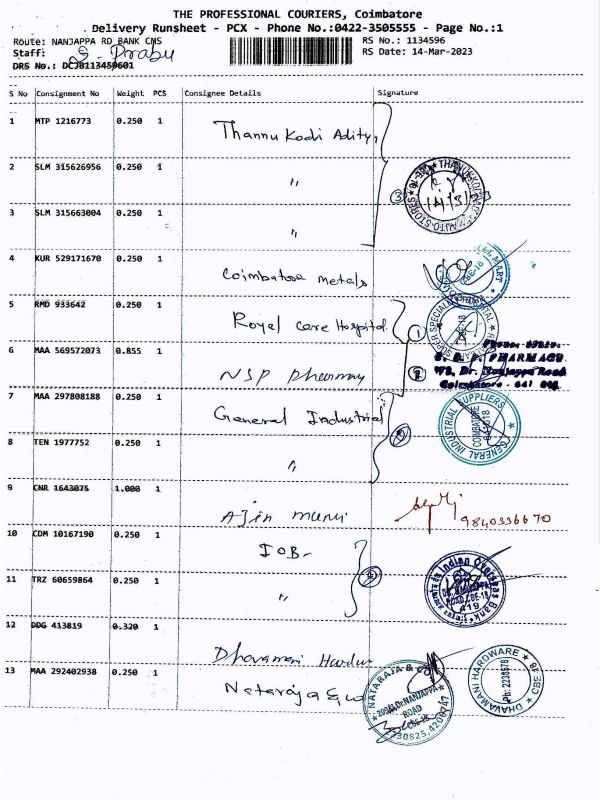 THE PROFESSIONAL COURIERS, Coimbatore
Delivery Runsheet - PCX - Phone No.:0422-3505555 - Page No.:1
Route: NANJAPPA RD BANK CMS
RS No.: 1134596
Staff: S. Prabu
RS Date: 14-Mar-2023
DRS No.: DCJB113459601
S No Consignment No Weight PCS Consignee Details Signature
1 MTP 1216773 0.250 1 Thannu Kodi Aditya
2 SLM 315626956 0.250 1 〃
3 SLM 315663004 0.250 1 〃
③
4 KUR 529171670 0.250 1 Coimbatore metals
5 RMD 933642 0.250 1 Royal Care Hospital
①
6 MAA 569572073 0.855 1 NSP Pharmacy
PHARMACY
Dr. Nanjappa Road
Coimbatore - 641 018
7 MAA 297808188 0.250 1 General Industrial
GENERAL INDUSTRIAL SUPPLIERS
COIMBATORE
641018
8 TEN 1977752 0.250 1 〃
9 CNR 1643075 1.000 1
9840336670
10 CDM 10167190 0.250 1 IOB
11 TRZ 60659864 0.250 1 〃
Indian Overseas Bank
ROAD, CBE-18
12 DDG 413819 0.320 1 Dhavamani Hardw
DHAVAMANI HARDWARE
CBE 18
Ph: 2238578
13 MAA 292402938 0.250 1 Nataraja & co
NATARAJA & CO
Dr. NANJAPPA
ROAD
CBE-18